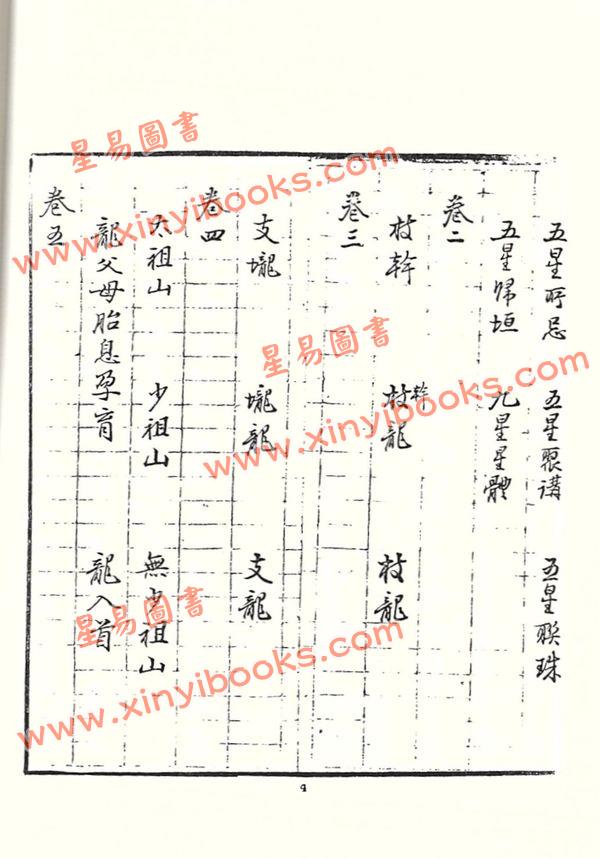 五星所忌 五星聚講 五星聯珠
五星歸垣 九星星體
卷二
枝幹 枝幹龍 枝龍
卷三
支壠 壠龍 支龍
卷四
太祖山 少祖山 無少祖山
龍父母胎息孕育 龍入首
卷五
4
星易圖書
www.xinyibooks.com
星易圖書
www.xinyibooks.com
星易圖書
www.xinyibooks.com